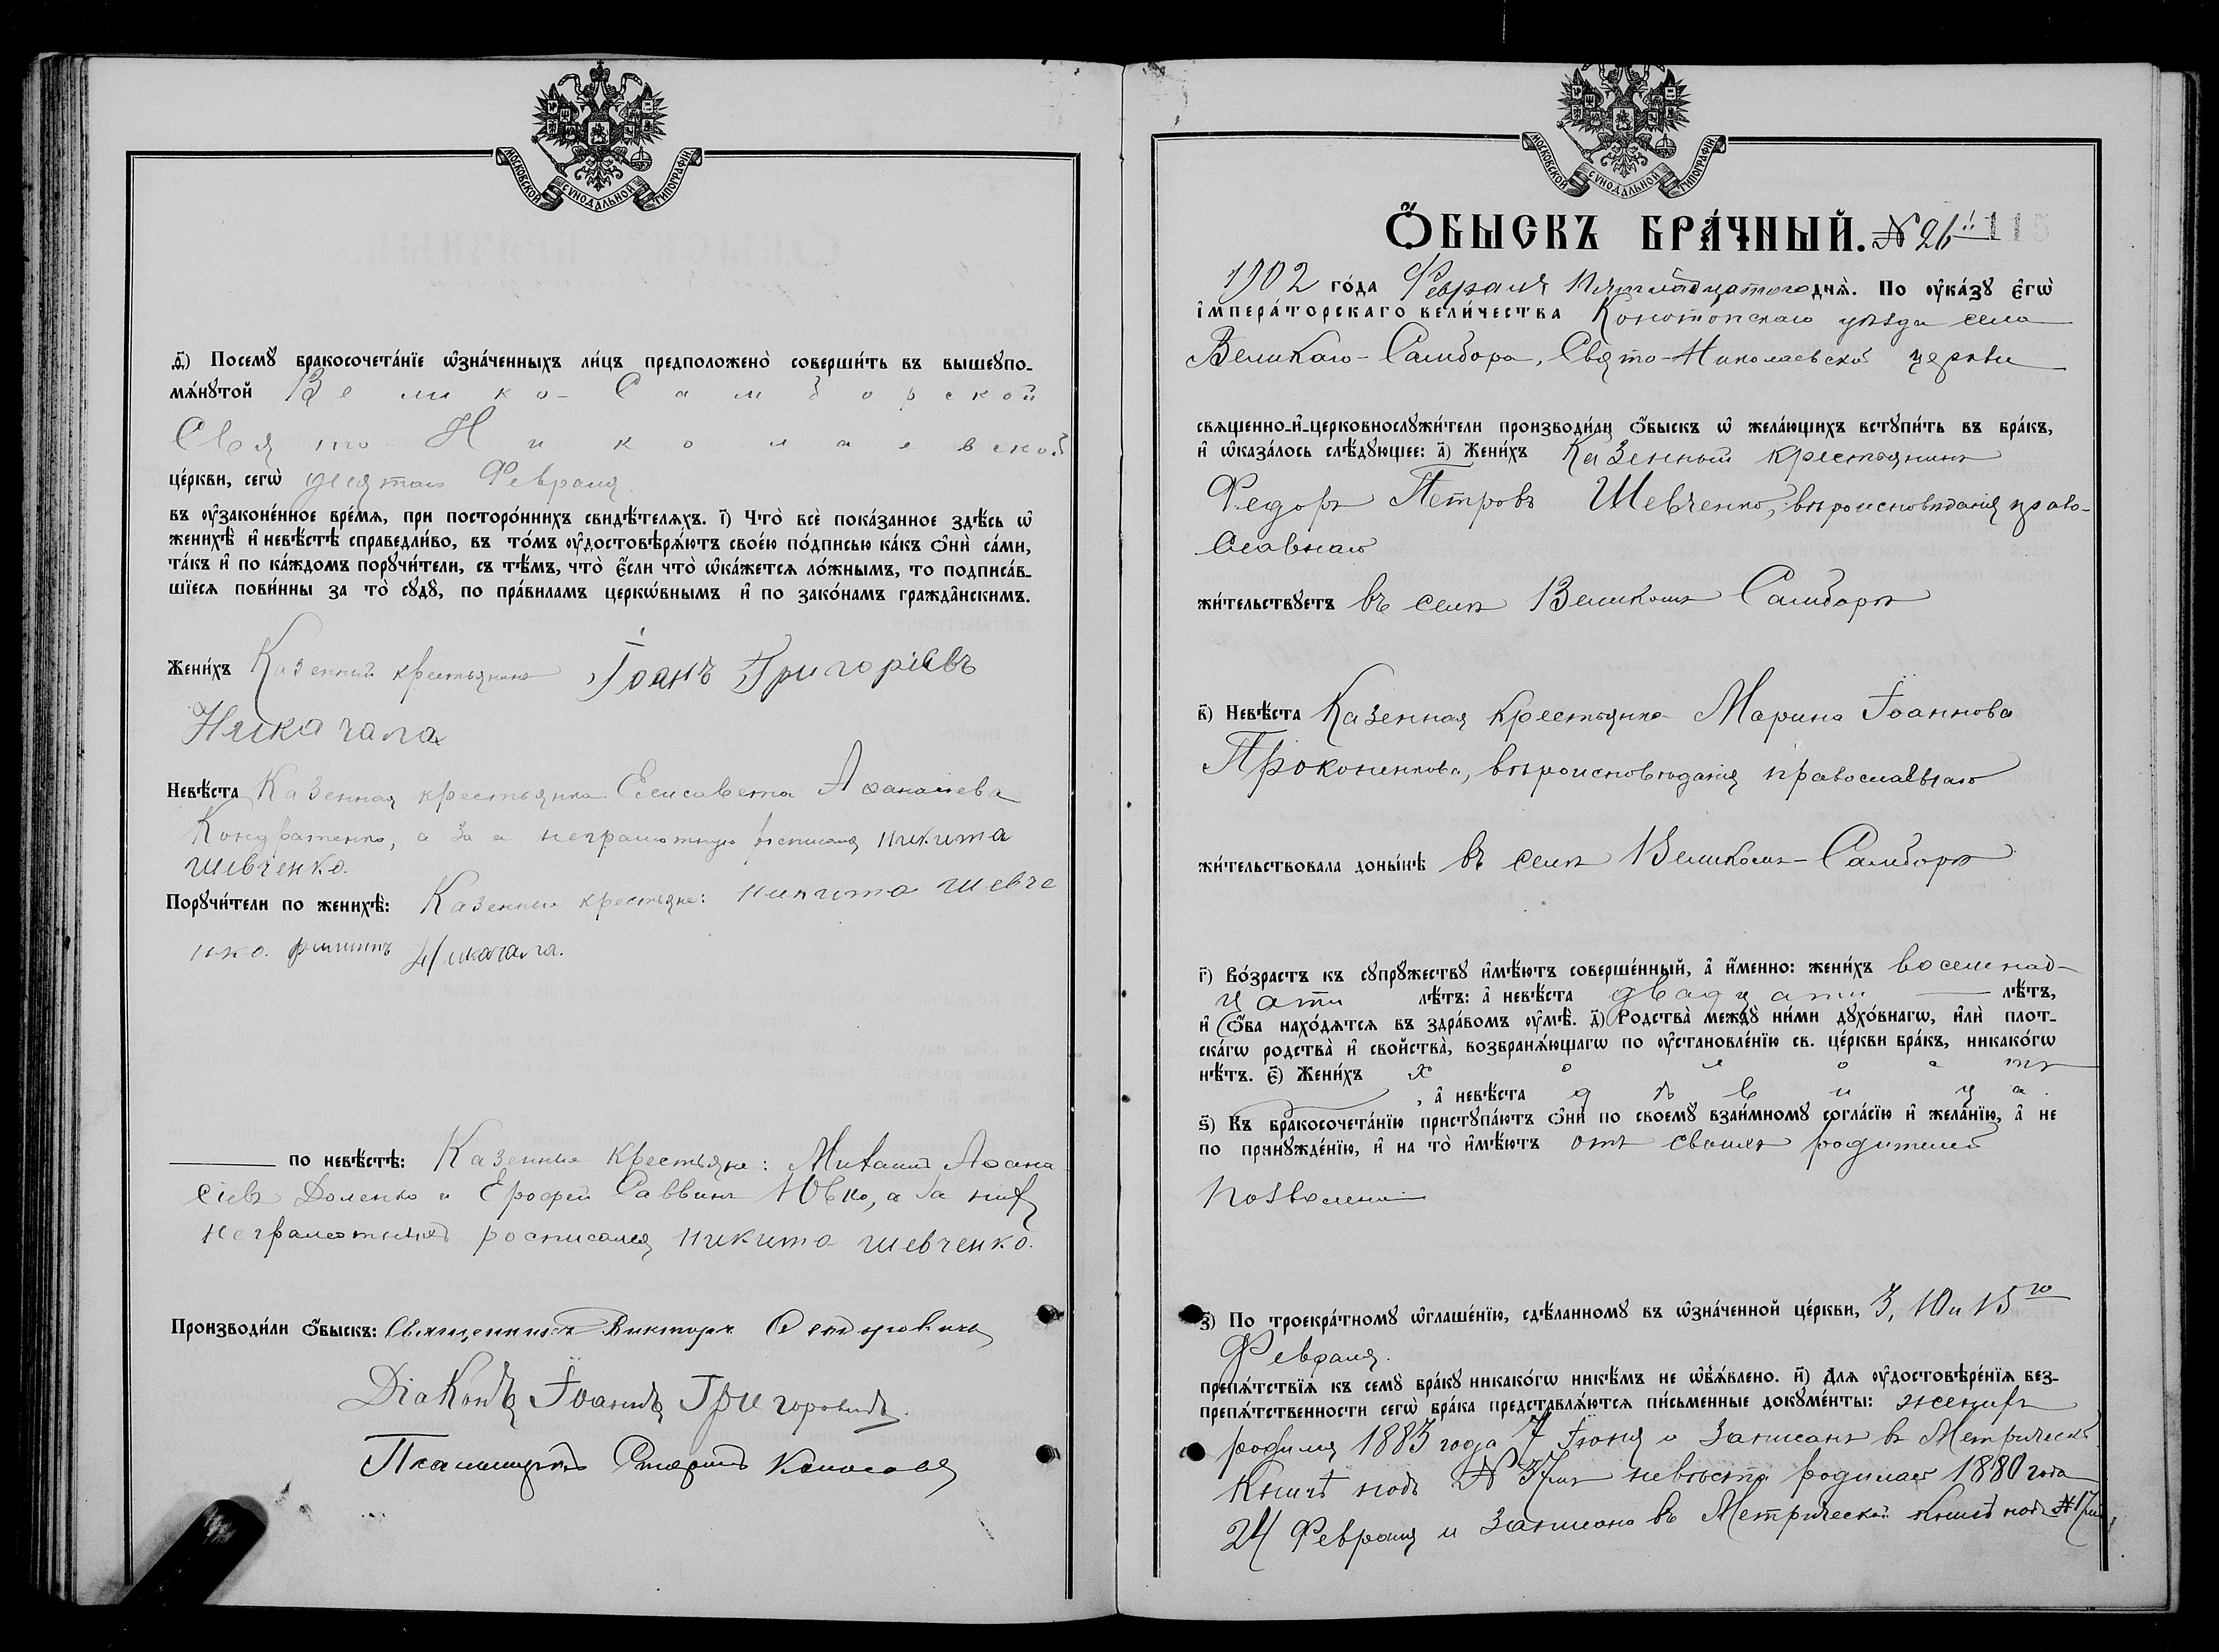 МОСКОВСКОЙ СѴНОДАЛЬНОЙ ТИПОГРАФІИ
ѳ҃) Посемꙋ бракосочета́нїе ѡ҆зна́ченныхъ ли́цъ предположено̀ соверши́ть въ вышеꙋпо-
мѧ́нꙋтой Велико-Самборской
Свято-Николаевской
це́ркви, сегѡ̀ десятаго Февраля
въ ᲂу҆зако́не́нное вре́мѧ, при посторо́ннихъ свидѣ́телѧхъ. і҃) Что̀ всѐ пока́занное здѣ́сь ѡ҆
женихѣ̀ и҆ невѣ́стѣ справедли́во, въ то́мъ ᲂу҆достовѣрѧ́ютъ свое́ю по́дписью ка́къ ѻ҆нѝ са́ми,
та́къ и҆ по ка́ждомъ порꙋчи́тели, съ тѣ́мъ, что̀ є҆́сли что̀ ѡ҆ка́жетсѧ ло́жнымъ, то подписа́в-
шїесѧ пови́нны за то̀ сꙋдꙋ̀, по пра́виламъ церко́внымъ и҆ по зако́намъ гражда̂нскимъ.
Жени́хъ Казенный крестьянинъ Іоанъ Григоріевъ
Никачала
Невѣ́ста Казенная крестьянка Елисавета Аѳанасіева
Кондратенко, а за неграмотную росписался Никита
Шевченко.
Порꙋчи́тели по женихѣ̀: Казенные крестьяне: Никита Шевче
нко. Филипъ Никачала.
по невѣ́стѣ: Казенные крестьяне: Михаилъ Аѳана
сіевъ Доленко и Ерофей Саввинъ Ювко, а за них
неграмотныхъ росписался Никита Шевченко.
Производи́ли ѻ҆́быскъ: Священникъ Викторъ
Діаконъ Іоаннъ Григоровичъ.
Псаломщикъ
МОСКОВСКОЙ СѴНОДАЛЬНОЙ ТИПОГРАФІИ
Ѻ҆́БЫСКЪ БРА́ЧНЫЙ. № 26й 115
1902 го́да Февраля Пятнадцатого днѧ̀. По ᲂу҆ка́зꙋ є҆гѡ̀
і҆мпера́торскаго вели́чества Конотопскаго уѣзда села
Великаго-Самбора, Свято-Николаевской церкви
свѧщенно-и҆-церковнослꙋжи́тели производи́ли ѻ҆́быскъ ѡ҆ жела́ющихъ встꙋпи́ть въ бра́къ,
и҆ ѡ҆каза́лось слѣ́дꙋющее: а҃) Жени́хъ Казенный крестьянинъ
Федоръ Петровъ Шевченко, вѣроисповѣданія право-
славнаго
жи́тельствꙋетъ въ селѣ Великомъ Самборѣ
в҃) Невѣ́ста Казенная крестьянка Марина Іоаннова
Прокопенкова, вѣроисповѣданія православнаго
жи́тельствовала доны́нѣ въ селѣ Великомъ-Самборѣ
г҃) Во́зрастъ къ сꙋпрꙋ́жествꙋ и҆мѣ́ютъ соверше́нный, а҆ и҆́менно: жени́хъ восемнад-
цати лѣ́тъ: а҆ невѣ́ста двадцати лѣ́тъ,
и҆ ѻ҆́ба нахо́дѧтсѧ въ здра́вомъ ᲂу҆мѣ̀. д҃) Родства̀ междꙋ̀ ни́ми дꙋхо́внагѡ, и҆лѝ плот-
ска́гѡ родства̀ и҆ сво́йства, возбранѧ́ющагѡ по ᲂу҆становле́нїю св. це́ркви бра́къ, никако́гѡ
нѣ́тъ. є҃) Жени́хъ холостъ
, а҆ невѣ́ста дѣвица.
ѕ҃) Къ бракосочета́нїю пристꙋпа́ютъ ѻ҆нѝ по своемꙋ̀ взаи́мномꙋ согла́сїю и҆ жела́нїю, а҆ не
по принꙋжде́нїю, и҆ на то̀ и҆мѣ́ютъ отъ своихъ родителей
позволеніе
з҃) По троекра́тномꙋ ѡ҆глаше́нїю, сдѣ́ланномꙋ въ ѡ҆зна́ченной це́ркви, 3, 10 и 15го
Февраля.
препѧ́тствїѧ къ семꙋ̀ бра́кꙋ никако́гѡ никѣ́мъ не ѡ҆бъѧ́влено. и҃) Длѧ ᲂу҆достовѣре́нїѧ без-
препѧ́тственности сегѡ̀ бра́ка представлѧ́ютсѧ пи́сьменные докꙋме́нты: женихъ
родился 1883 года 7 Іюня и записанъ въ Метрическ
книгѣ подъ № 37мъ невѣста родилась 1880 года
24 Февраля и записана въ Метрической книгѣ подъ № 17